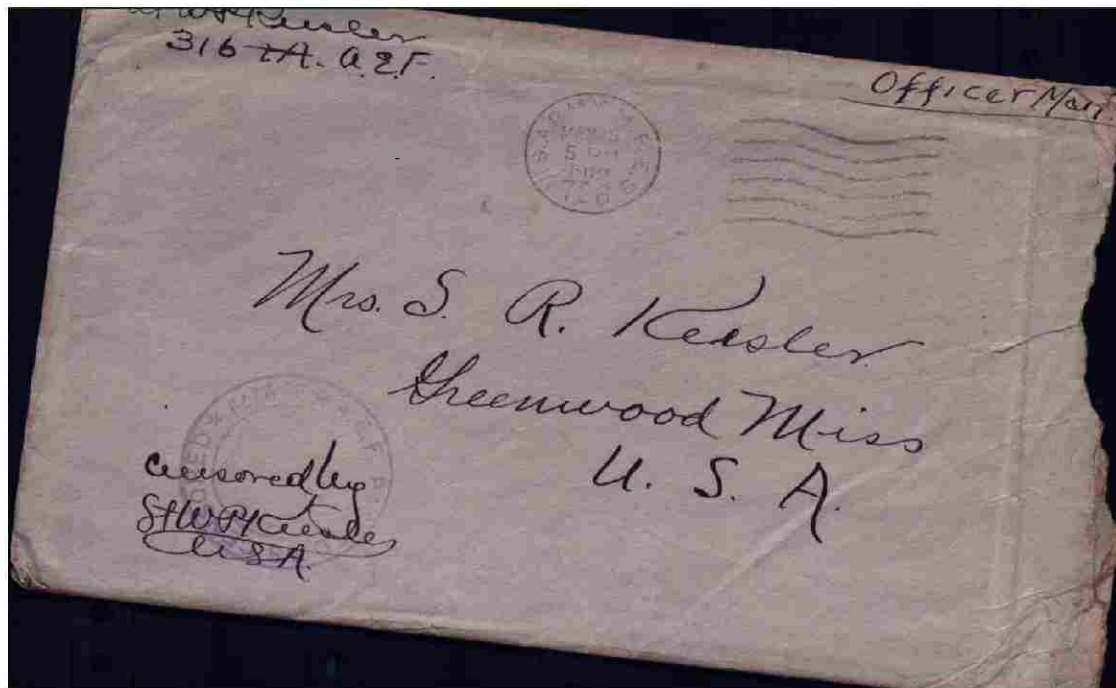 Keesler
316 F.A. A.E.F.
Officer Mail
5 PM
1919
Mrs. S. R. Keesler
Greenwood Miss
U. S. A.
Censored by
Keesler
U S A.